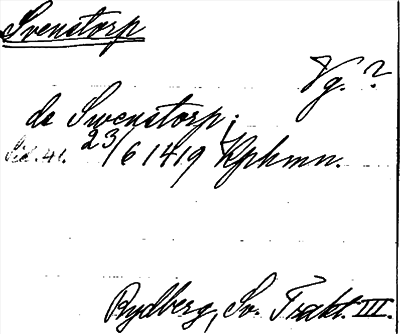 Svenstorp
Vg. ?
de Swenstorp;
Sid. 41. 23/6 1419 Kphmn.
Rydberg, Sv. Trakt. III.